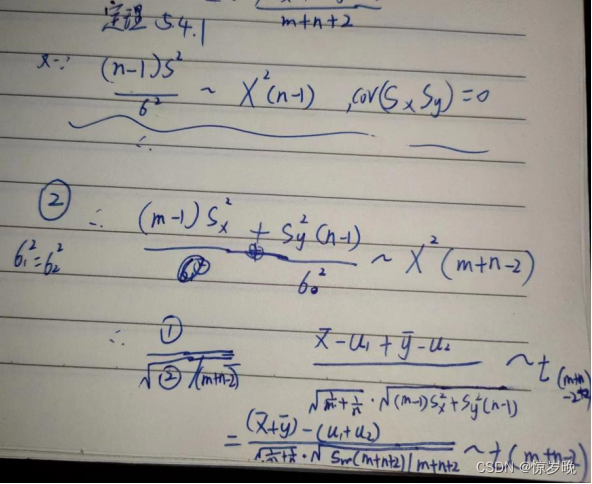 m+n+2
定理 5.4.1
∵ (n-1)S² / σ² ~ χ²(n-1) , cov(Sx Sy)=0
∴
② ∴ ((m-1)Sx² + Sy²(n-1)) / σ₀² ~ χ²(m+n-2)
σ₁²=σ₂²
∴ ① / √(②/(m+n-2))    (x̄-u₁+ȳ-u₂) / (√(1/m+1/n)·√((m-1)Sx²+Sy²(n-1))) ~ t(m+n-2)
= ((x̄+ȳ)-(u₁+u₂)) / (√(1/m+1/n)·√(Sm(m+n+2)/m+n+2)) ~ t(m+n-2)
CSDN @惊岁晚